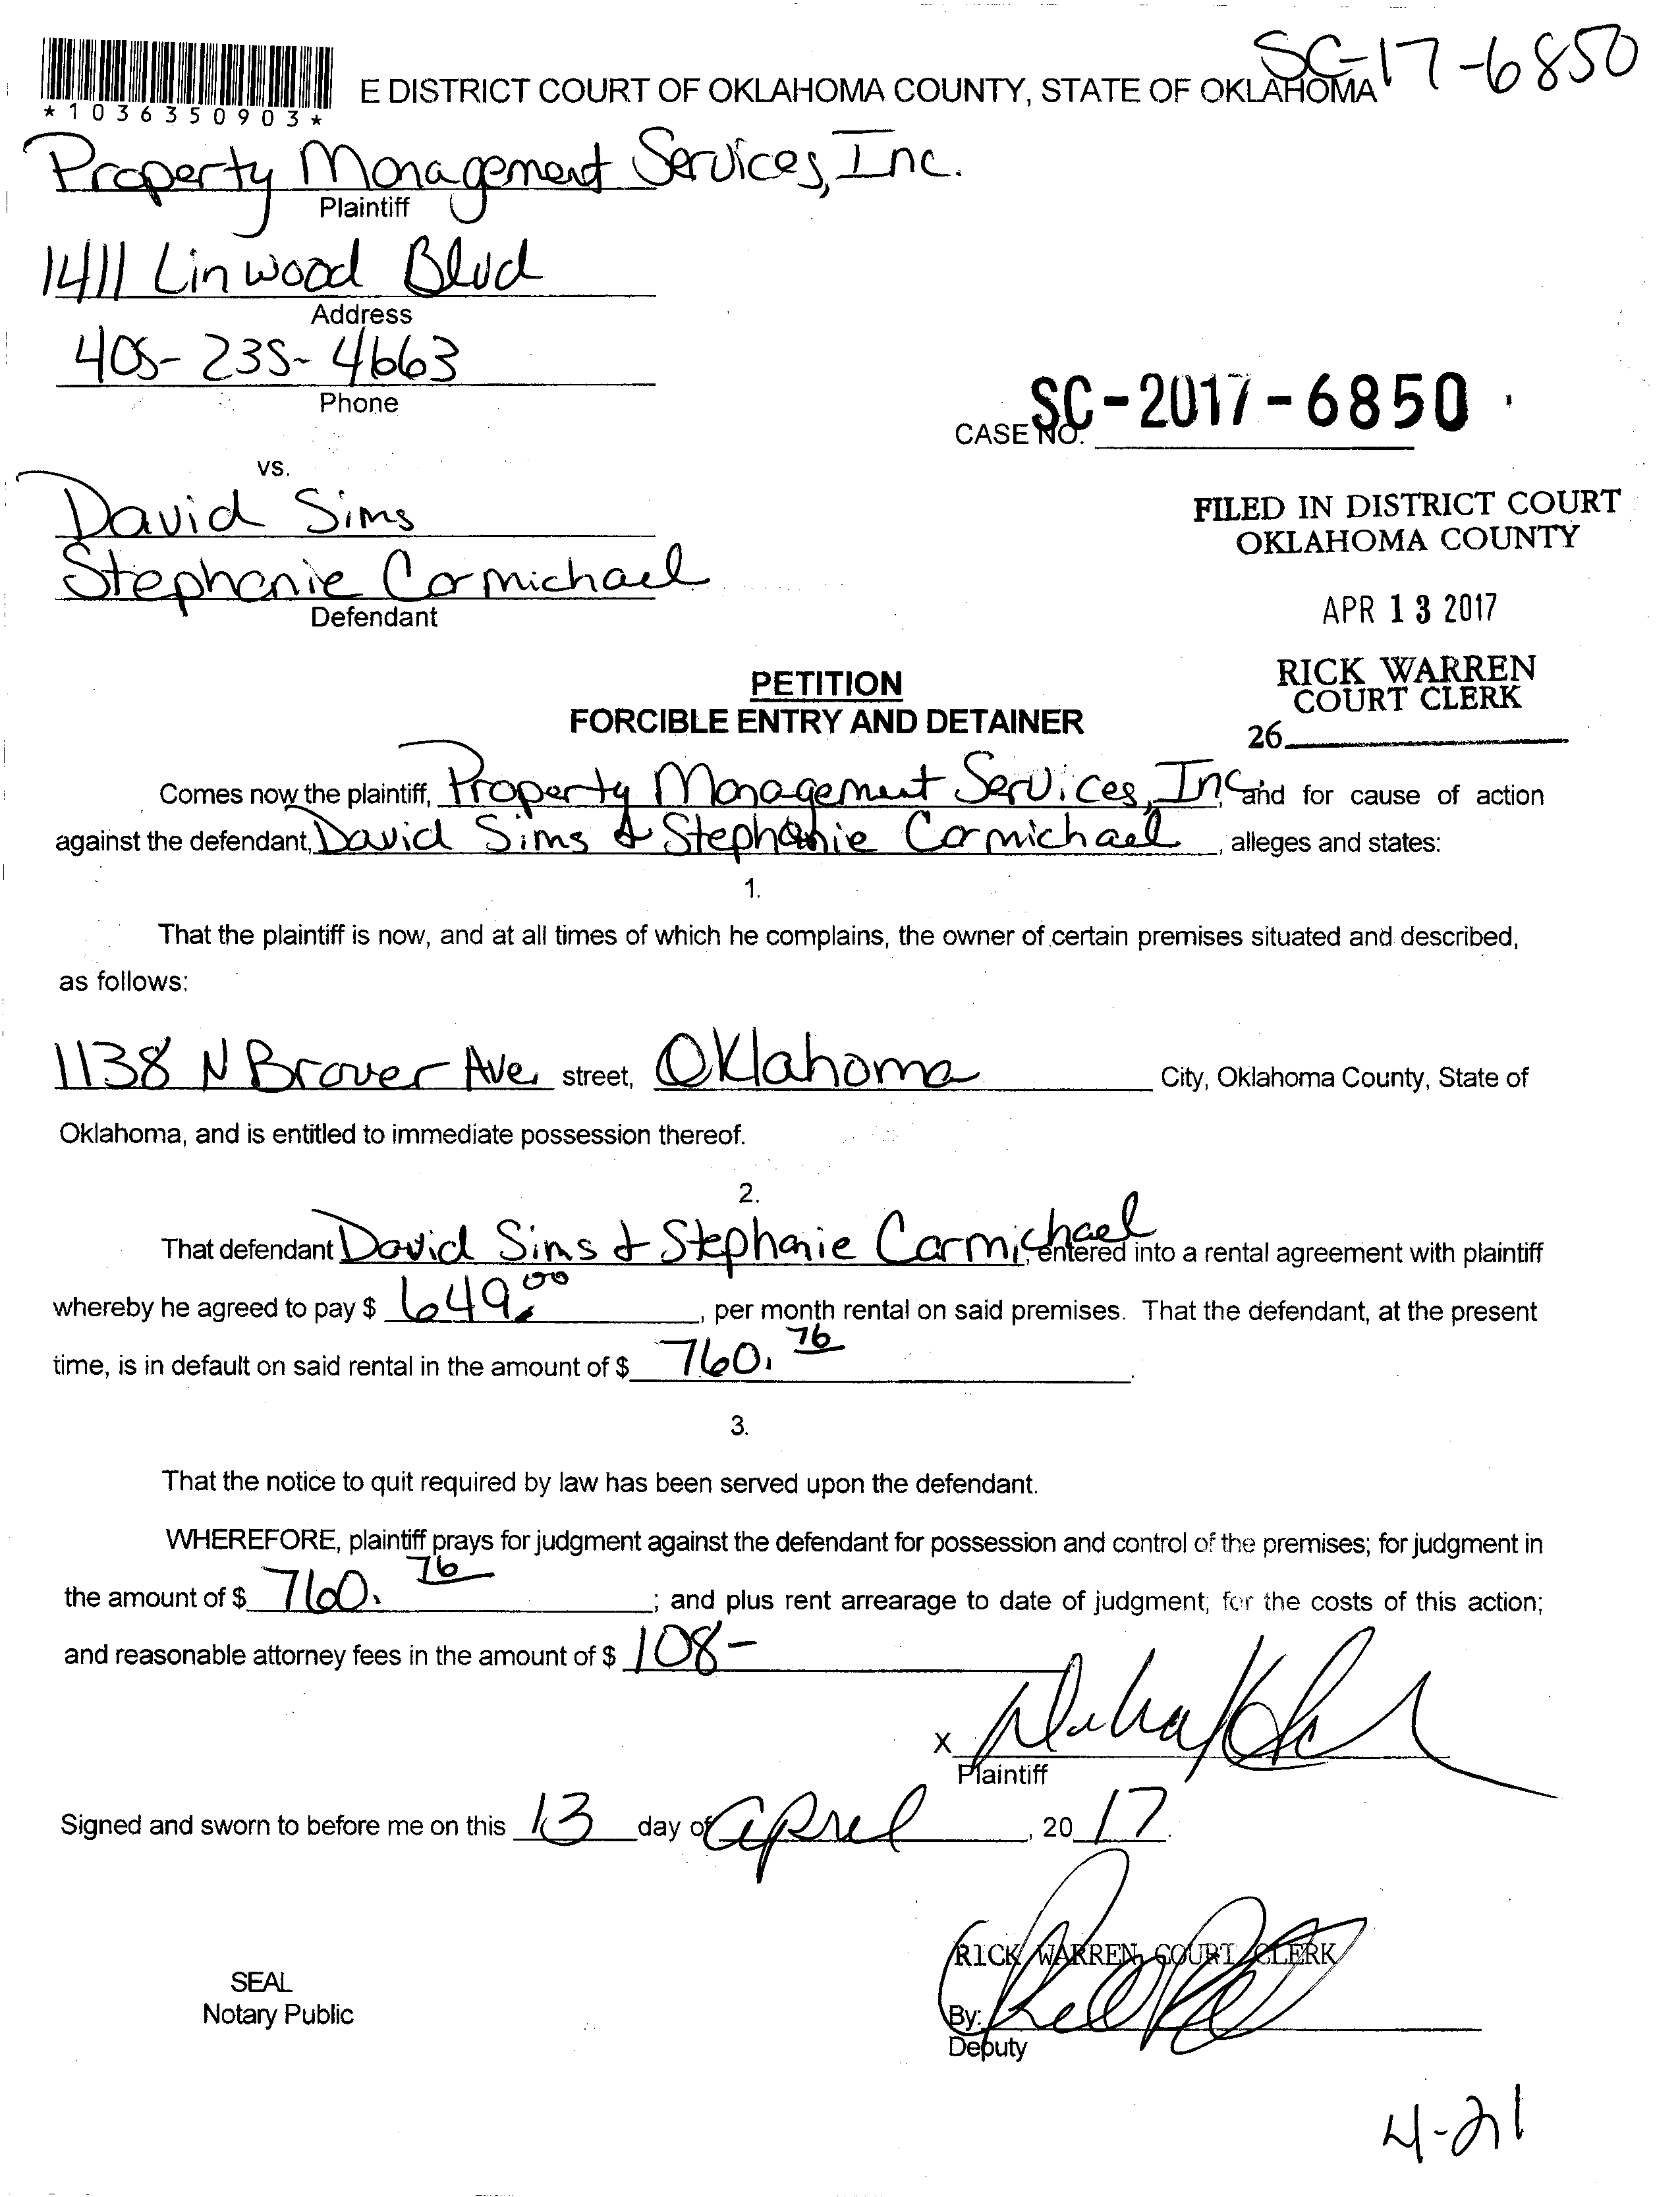 SC-17-6850
*1036350903*
E DISTRICT COURT OF OKLAHOMA COUNTY, STATE OF OKLAHOMA
Property Management Services, Inc.
Plaintiff
1411 Linwood Blvd
Address
405-235-4663
Phone
CASE NO. SC-2017-6850
vs.
David Sims
Stephanie Carmichael
Defendant
FILED IN DISTRICT COURT
OKLAHOMA COUNTY
APR 13 2017
RICK WARREN
COURT CLERK
26
PETITION
FORCIBLE ENTRY AND DETAINER
Comes now the plaintiff, Property Management Services, Inc, and for cause of action
against the defendant, David Sims & Stephanie Carmichael, alleges and states:
1.
That the plaintiff is now, and at all times of which he complains, the owner of certain premises situated and described,
as follows:
1138 N Brauer Ave. street, Oklahoma City, Oklahoma County, State of
Oklahoma, and is entitled to immediate possession thereof.
2.
That defendant David Sims & Stephanie Carmichael, entered into a rental agreement with plaintiff
whereby he agreed to pay $ 649.00, per month rental on said premises. That the defendant, at the present
time, is in default on said rental in the amount of $ 760.76.
3.
That the notice to quit required by law has been served upon the defendant.
WHEREFORE, plaintiff prays for judgment against the defendant for possession and control of the premises; for judgment in
the amount of $ 760.76; and plus rent arrearage to date of judgment; for the costs of this action;
and reasonable attorney fees in the amount of $ 108-
X
Plaintiff
Signed and sworn to before me on this 13 day of april, 20 17.
RICK WARREN, COURT CLERK
SEAL
Notary Public
By:
Deputy
4-21